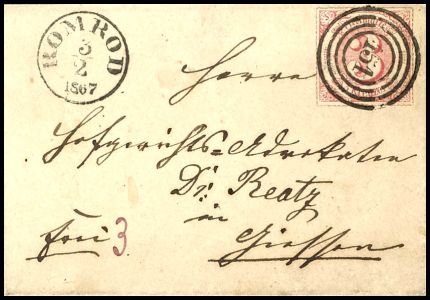 ROMROD
3/2
1867
3
154
Herrn
Hofgerichts=Advokaten
Dr. Reatz
in
Giessen
frei 3